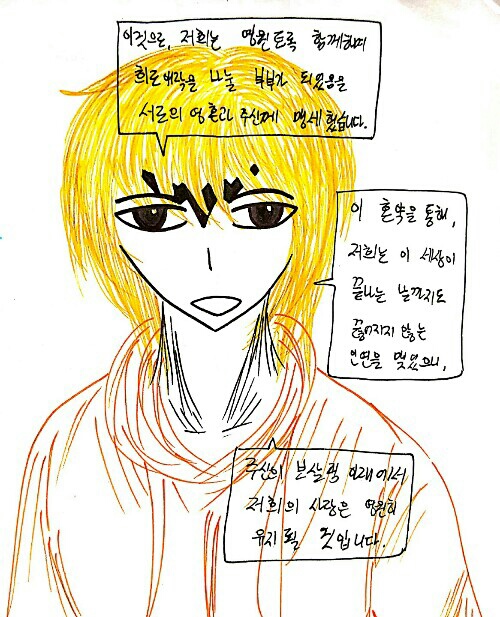 이것으로, 저희는 영원토록 함께하며
희로애락을 나눌 부부가 되었음을
서로의 영혼과 주신께 맹세했습니다.
이 혼약을 통해,
저희는 이 세상이
끝나는 날까지도
끊어지지 않는
인연을 맺었으니,
주신의 보살핌 아래에서
저희의 사랑은 영원히
유지될 것입니다.